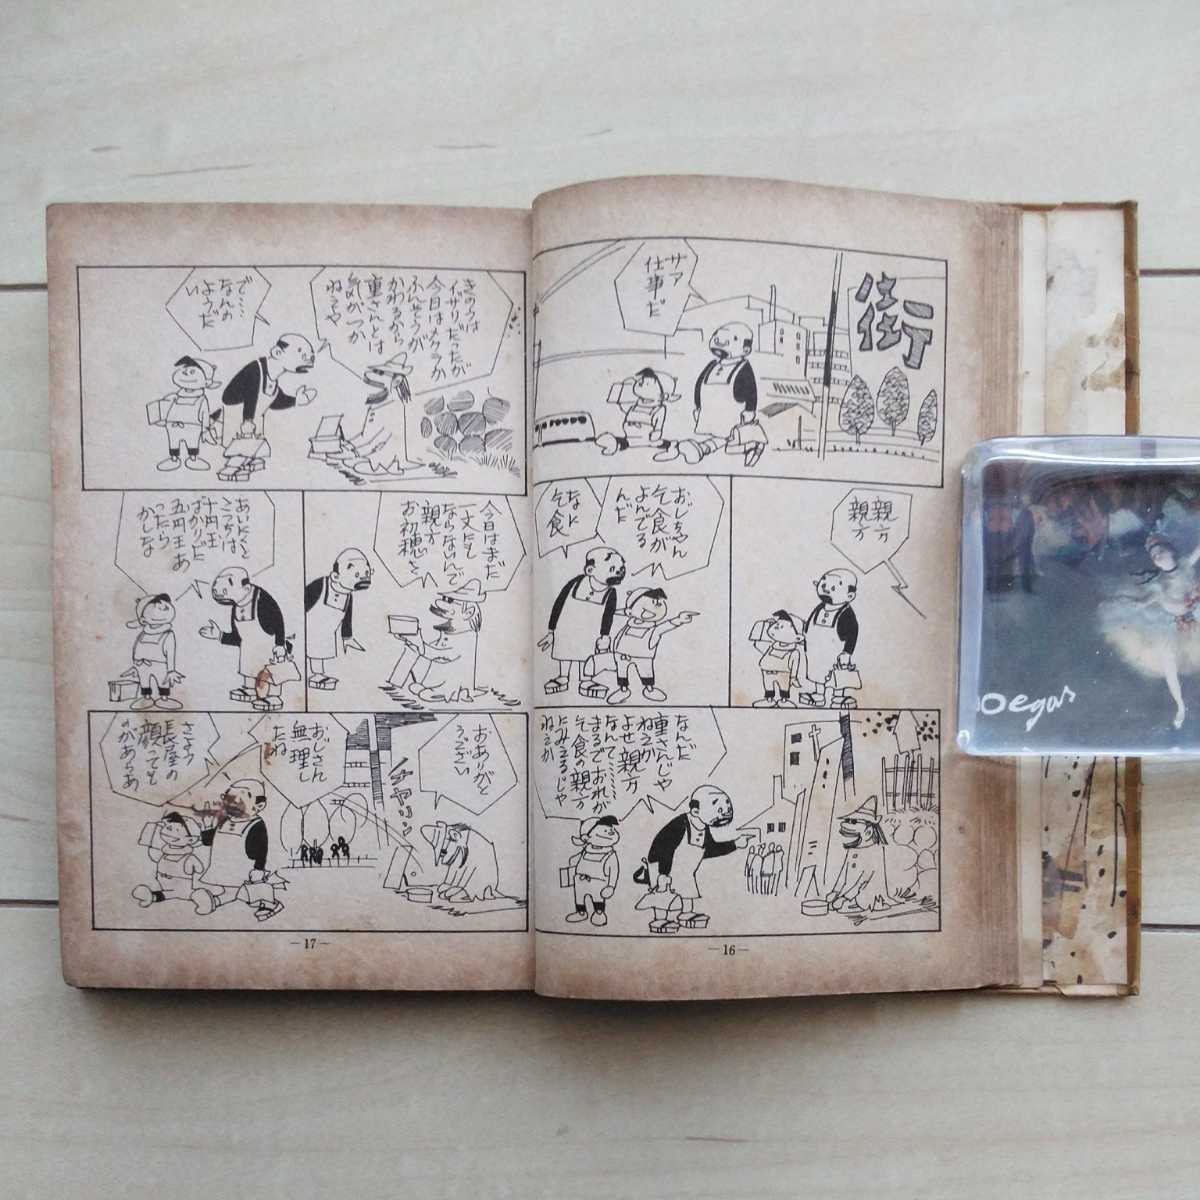 街
サァ
仕事だ
親方
親方
おじちゃん
乞食が
よんでる
んだ
なに
乞食
なんだ
重さんじゃ
ねえか
よせ親方
なんて……
まるでおれが
乞食の親方
にみえるじゃ
ねえか
きのうは
イザリだったが
今日はメクラか
ふんそうが
かわるから
重さんとは
気がつか
ねえや
で……
なんの
ようだ
い
今日はまだ
一文にも
ならないんで
親方
お初穂を
あいにくと
こっちは
十円玉
ばかりだ
五円玉あ
ったら
かしな
おありがと
うござい
チャリン
おじさん
無理し
たね
さよう
長屋の
顔ってもの
があらあ
—16—
—17—
Degas